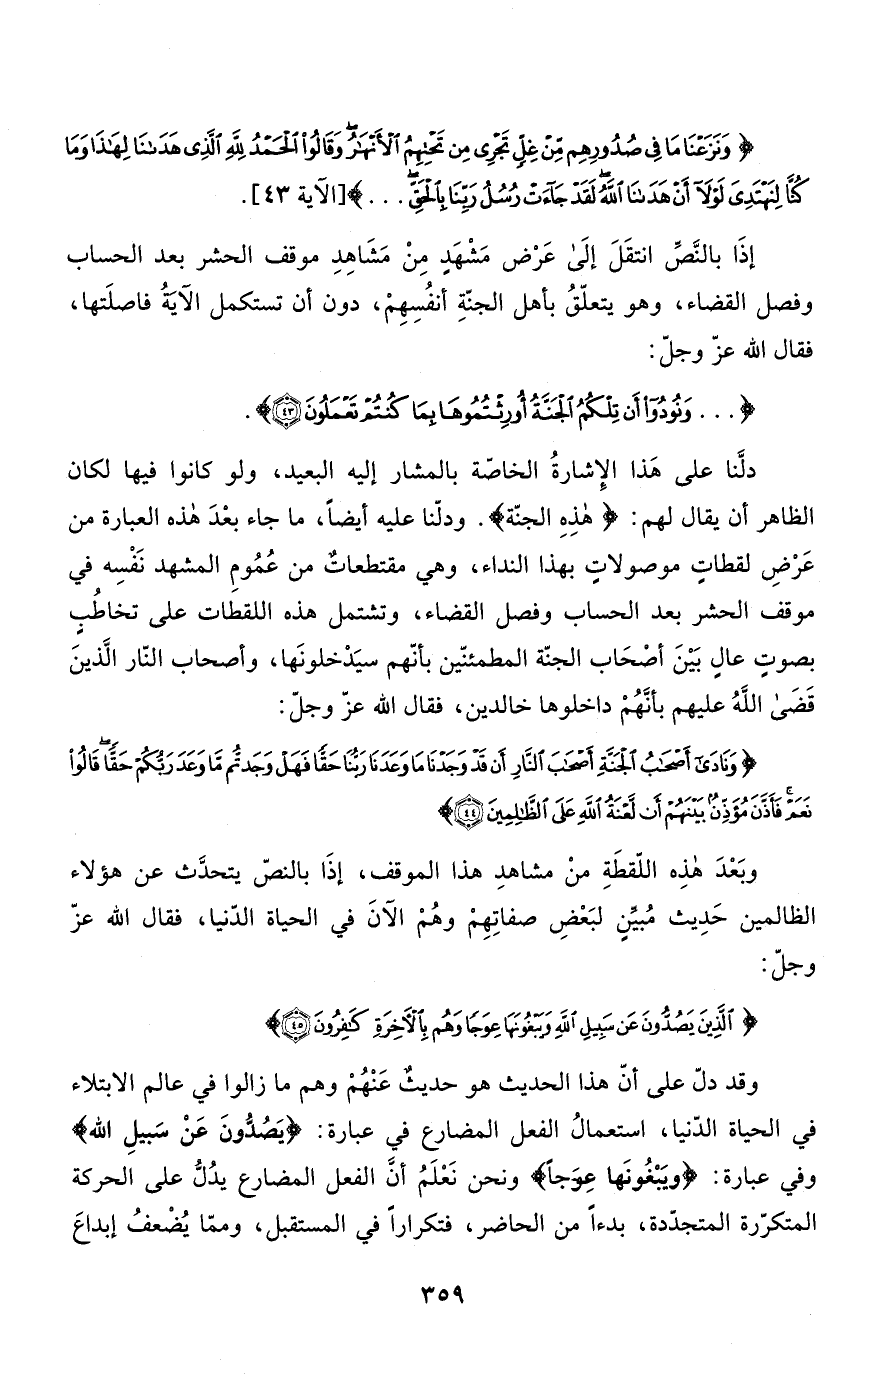 ﴿ وَنَزَعْنَا مَا فِى صُدُورِهِم مِّنْ غِلٍّ تَجْرِى مِن تَحْتِهِمُ ٱلْأَنْهَـٰرُ ۖ وَقَالُوا۟ ٱلْحَمْدُ لِلَّهِ ٱلَّذِى هَدَىٰنَا لِهَـٰذَا وَمَا
كُنَّا لِنَهْتَدِىَ لَوْلَآ أَنْ هَدَىٰنَا ٱللَّهُ ۖ لَقَدْ جَآءَتْ رُسُلُ رَبِّنَا بِٱلْحَقِّ ۖ . . . ﴾ [الآية ٤٣].
إذَا بالنَّصِّ انتقَلَ إلَىٰ عَرْض مَشْهَدٍ مِنْ مَشَاهِدِ موقف الحشر بعد الحساب
وفصل القضاء، وهو يتعلّقُ بأهل الجنّةِ أنفُسِهِمْ، دون أن تستكمل الآيَةُ فاصلَتها،
فقال الله عزّ وجلّ:
﴿ . . . وَنُودُوٓا۟ أَن تِلْكُمُ ٱلْجَنَّةُ أُورِثْتُمُوهَا بِمَا كُنتُمْ تَعْمَلُونَ ٤٣ ﴾ .
دلَّنا على هَذا الإِشارةُ الخاصّة بالمشار إليه البعيد، ولو كانوا فيها لكان
الظاهر أن يقال لهم: ﴿ هٰذِهِ الجنّة﴾. ودلّنا عليه أيضاً، ما جاء بعْدَ هٰذه العبارة من
عَرْضِ لقطاتٍ موصولاتٍ بهذا النداء، وهي مقتطعاتٌ من عُمُومِ المشهد نَفْسِه في
موقف الحشر بعد الحساب وفصل القضاء، وتشتمل هذه اللقطات على تخاطُبٍ
بصوتٍ عالٍ بَيْنَ أصْحَابِ الجنّة المطمئنّين بأنّهم سيَدْخلونَها، وأصحاب النّار الَّذينَ
قَضَىٰ اللَّهُ عليهم بأنَّهُمْ داخلوها خالدين، فقال الله عزّ وجلّ:
﴿ وَنَادَىٰٓ أَصْحَـٰبُ ٱلْجَنَّةِ أَصْحَـٰبَ ٱلنَّارِ أَن قَدْ وَجَدْنَا مَا وَعَدَنَا رَبُّنَا حَقًّا فَهَلْ وَجَدتُّم مَّا وَعَدَ رَبُّكُمْ حَقًّا ۖ قَالُوا۟
نَعَمْ ۚ فَأَذَّنَ مُؤَذِّنٌۢ بَيْنَهُمْ أَن لَّعْنَةُ ٱللَّهِ عَلَى ٱلظَّـٰلِمِينَ ٤٤ ﴾
وبَعْدَ هٰذِه اللّقطَةِ مِنْ مشاهدِ هذا الموقف، إذَا بالنصّ يتحدَّث عن هؤلاء
الظالمين حَدِيث مُبيِّنٍ لبَعْضِ صفاتِهِمْ وهُمْ الآنَ في الحياة الدّنيا، فقال الله عزّ
وجلّ:
﴿ ٱلَّذِينَ يَصُدُّونَ عَن سَبِيلِ ٱللَّهِ وَيَبْغُونَهَا عِوَجًا وَهُم بِٱلْـَٔاخِرَةِ كَـٰفِرُونَ ٤٥ ﴾
وقد دلّ على أنّ هذا الحديث هو حديثٌ عَنْهُمْ وهم ما زالوا في عالم الابتلاء
في الحياة الدّنيا، استعمالُ الفعل المضارع في عبارة: ﴿يَصُدُّونَ عَنْ سَبيلِ الله﴾
وفي عبارة: ﴿ويَبْغُونَها عِوَجاً﴾ ونحن نَعْلَمُ أنَّ الفعل المضارع يدُلُّ على الحركة
المتكرّرة المتجدّدة، بدءاً من الحاضر، فتكراراً في المستقبل، وممّا يُضْعفُ إبداعَ
٣٥٩